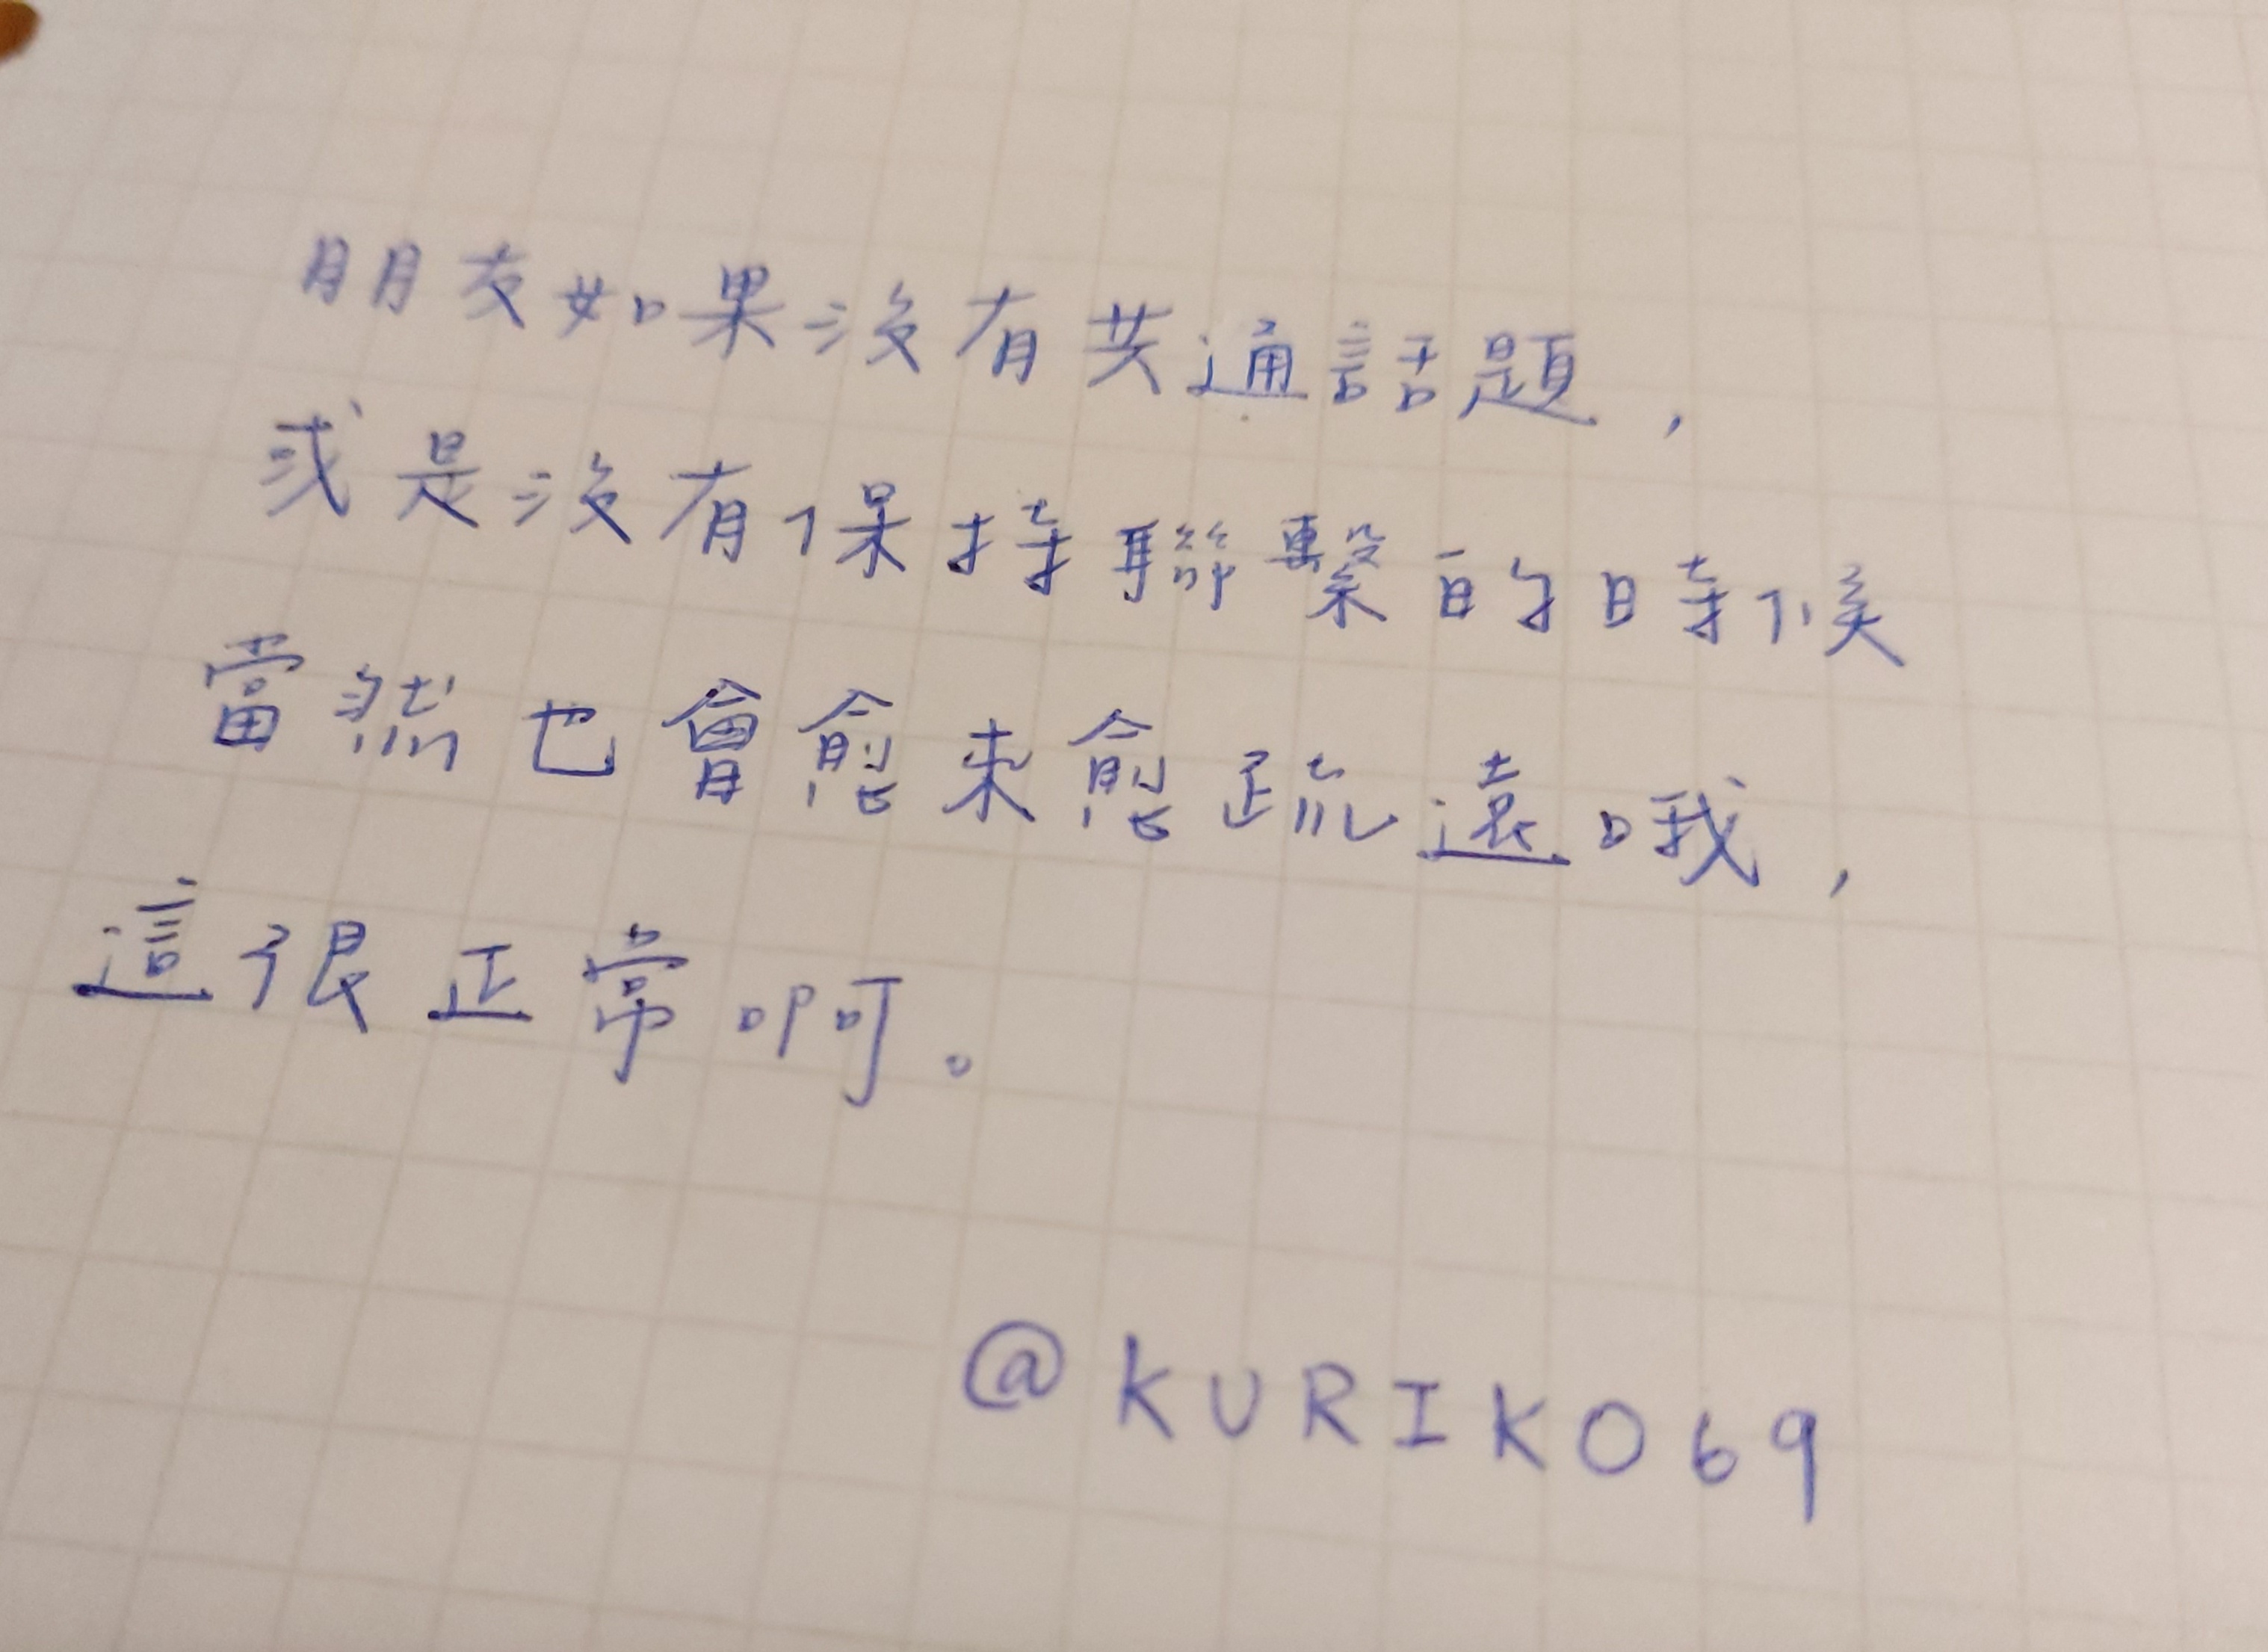 朋友如果沒有共通話題，
或是沒有保持聯繫的時候
當然也會愈來愈疏遠哦，
這很正常啊。
@KURIKO69